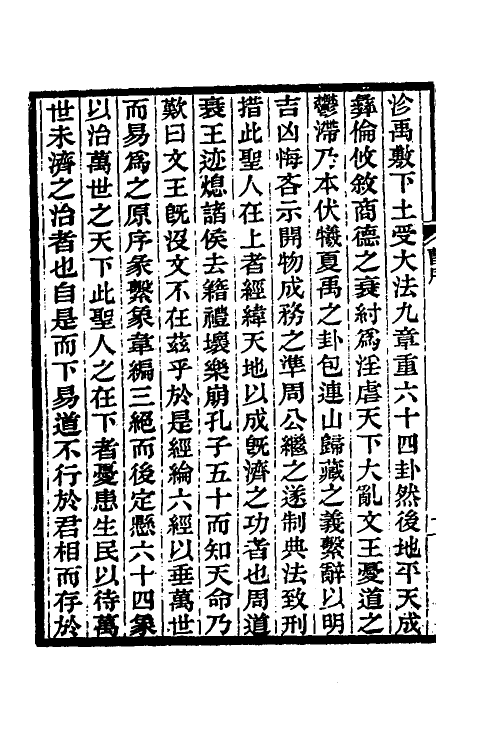 沴禹敷下土受大法九章重六十四卦然後地平天成
彝倫攸敘商德之衰紂為淫虐天下大亂文王憂道之
鬱滯乃本伏犧夏禹之卦包連山歸藏之義繫辭以明
吉凶悔吝示開物成務之準周公繼之遂制典法致刑
措此聖人在上者經緯天地以成既濟之功者也周道
衰王迹熄諸侯去籍禮壞樂崩孔子五十而知天命乃
歎曰文王既沒文不在茲乎於是經綸六經以垂萬世
而易為之原序彖繫象韋編三絕而後定懸六十四象
以治萬世之天下此聖人之在下者憂患生民以待萬
世未濟之治者也自是而下易道不行於君相而存於